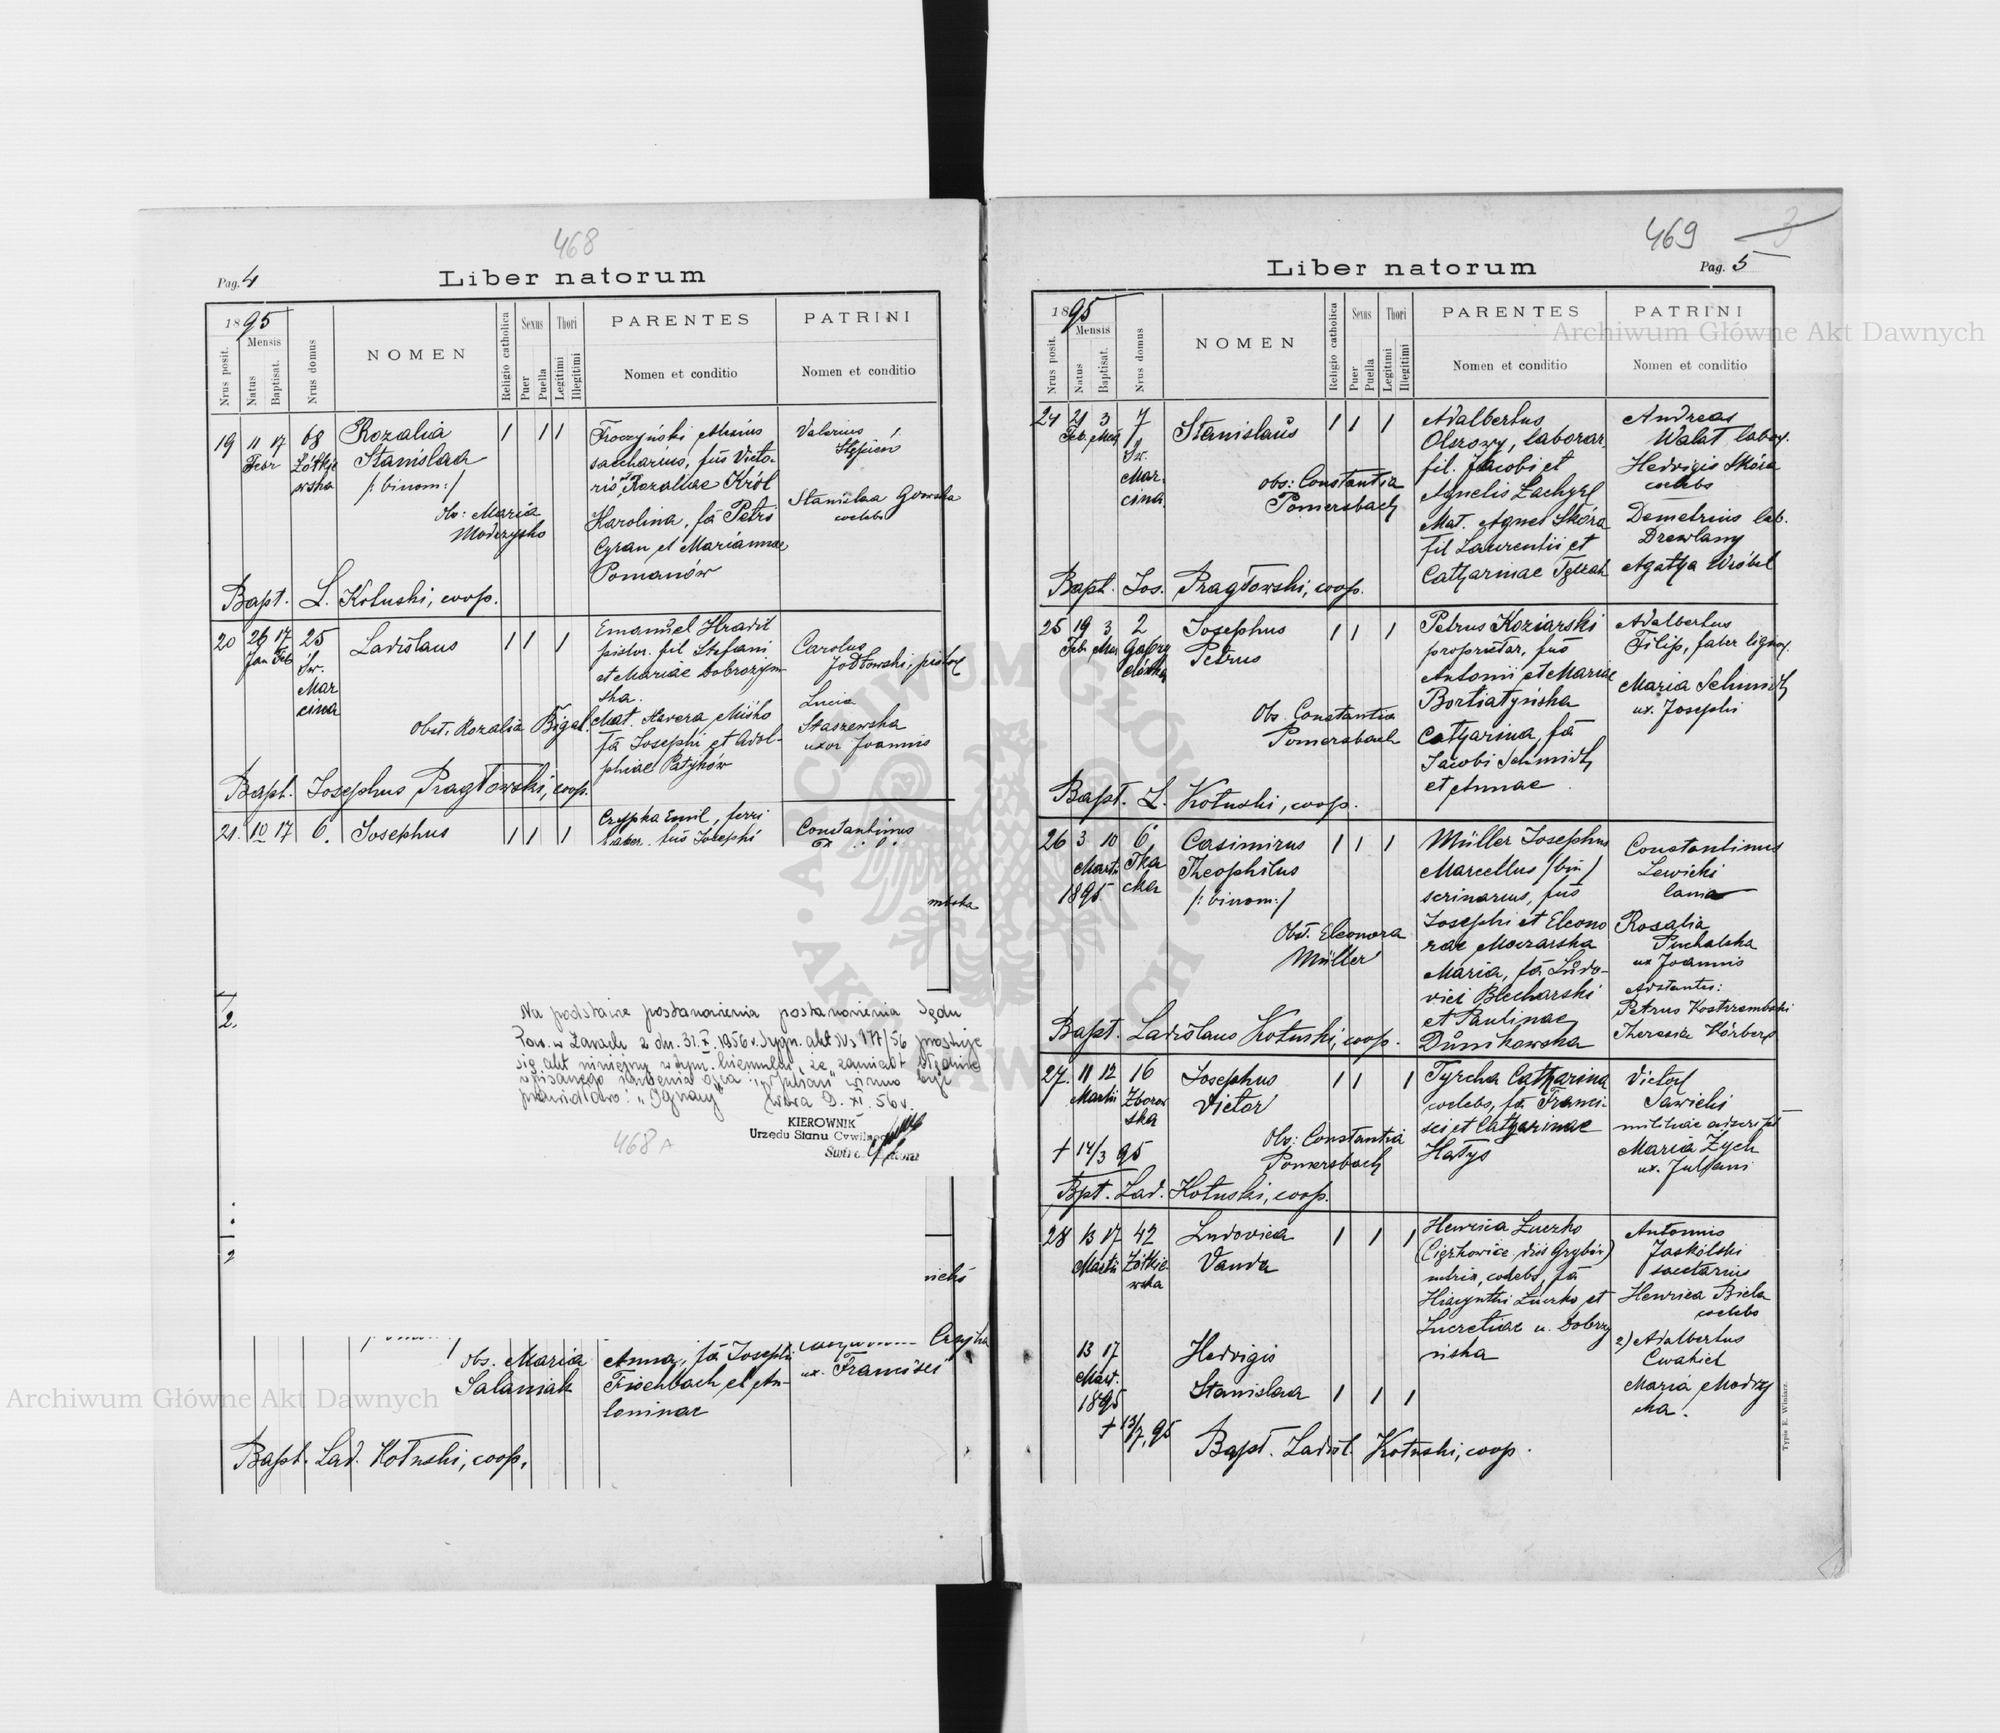 468
Pag. 4
Liber natorum
1895
Nrus posit.
Mensis
Natus
Baptisat.
Nrus domus
NOMEN
Religio catholica
Sexus
Puer
Puella
Thori
Legitimi
Illegitimi
PARENTES
Nomen et conditio
PATRINI
Nomen et conditio
19 11 17 68 Rozalia 1 1 1
Febr Żółkie
wska
Stanislaa
/: binom:/
Obs: Maria
Modrzysko
saccharius, fius Victo-
ris et Rozaliae Król
Karolina, fa Petri
Cyran et Mariannae
Pomanów
Valerius
Stępień
Stanislaa
coelebs
Bapt. L. Kotuski, coop.
20 26 17 25 Ladislaus 1 1 1
Jan Feb
Św.
Mar
cina
Obst. Rozalia Bigal.
Emanuel Hradil
pistor. fil Stefani
et Mariae Dobrozym
ska.
Mat. Xavera Misko
fa Josephi et Adol-
phiae Patyków
Carolus
Jodłowski, pistor
Lucia
Staszewska
uxor Joannis
Bapt. Josephus Pragłowski, coop.
21. 10 17 6. Josephus 1 1 1
Czypka Emil, ferri
faber. fius Josephi
Constantinus
2.
2
Na podstawie postanowienia postanowienia Sądu
Pow. w Żarach z dn. 31.X.1956 r. Sygn. akt Ns 177/56 prostuje
się akt niniejszy w tym brzmieniu, że zamiast błędnie
wpisanego imienia ojca: "Julian" winno być
prawidłowo: "Ignacy" 9. XI. 56 r.
KIEROWNIK
Urzędu Stanu Cywilnego
468 A
obs. Maria
Salaniak
Anna, fa Josephi
Fischbach et An-
toninae
Czypka
ux. Francisci
Bapt. Lad. Kotuski, coop.
469
Liber natorum
Pag. 5
1895
Nrus posit.
Mensis
Natus
Baptisat.
Nrus domus
NOMEN
Religio catholica
Sexus
Puer
Puella
Thori
Legitimi
Illegitimi
PARENTES
Nomen et conditio
PATRINI
Nomen et conditio
24 21 3 7 Stanislaus 1 1 1
Feb. Mar
Św.
Mar
cina
obs: Constantia
Pomersbach
Adalbertus
laborar.
fil. Jacobi et
Agnetis
Mat. Agnes Skóra
fil Laurentii et
Catharinae
Andreas
Walat labor.
Hedvigis Skóra
coelebs
Demetrius lab.
Drewlany
Agatha Wróbel
Bapt. Jos. Pragłowski, coop.
25 19 3 2 Josephus 1 1 1
Feb. Mar
Petrus
Obs. Constantia
Pomersbach
Petrus Koziarski
proprietar, fius
Antonii et Mariae
Bortiatyńska
Catharina, fa
Jacobi Schmidt
et Annae
Adalbertus
Filip, faber lignar.
Maria Schmidt
ux. Josephi
Bapt. L. Kotuski, coop.
26 3 10 6 Casimirus 1 1 1
Martii
1895
Tka
cka
Theophilus
/: binom:/
Obst. Eleonora
Müller
Müller Josephus
Marcellus /bin/
scrinarius, fius
Josephi et Eleono
rae Moczarska
Maria, fa Ludo-
vici Blecharski
et Paulinae
Dunikowska
Constantinus
Lewicki
lania
Rosalia
Puchalska
ux Joannis
Adstantes:
Petrus Kostrzembski
Theresia Körberg
Bapt. Ladislaus Kotuski, coop.
27. 11 12 16 Josephus 1 1 1
Martii
Zborow
ska
Victor
Obs: Constantia
Pomersbach
+ 14/3 95
Tyrcha Catharina
coelebs, fa Franci-
sci et Catharinae
Hałys
Victor
Sawicki
militiae adscript
Maria Zych
ux. Juliani
Bpt. Lad. Kotuski, coop.
28 13 17 42 Ludovica 1 1 1
Martii
Żółkie-
wska
Vanda
Henrica Łuczko
(Ciężkowice dist Grybów)
nutrix, coelebs, fa
Hiacynthi Łuczko et
Lucretiae n. Dobrzy
niska
Antonius
Jaskólski
Henrica Biela
coelebs
13 17
Mart.
1895
Hedvigis
Stanislaa 1 1 1
2) Adalbertus
Cwakiel
Maria Modrzy
cka.
+ 13/7, 95
Bapt. Ladisl. Kotuski, coop.
Typis E. Winiarz.
Archiwum Główne Akt Dawnych
Archiwum Główne Akt Dawnych